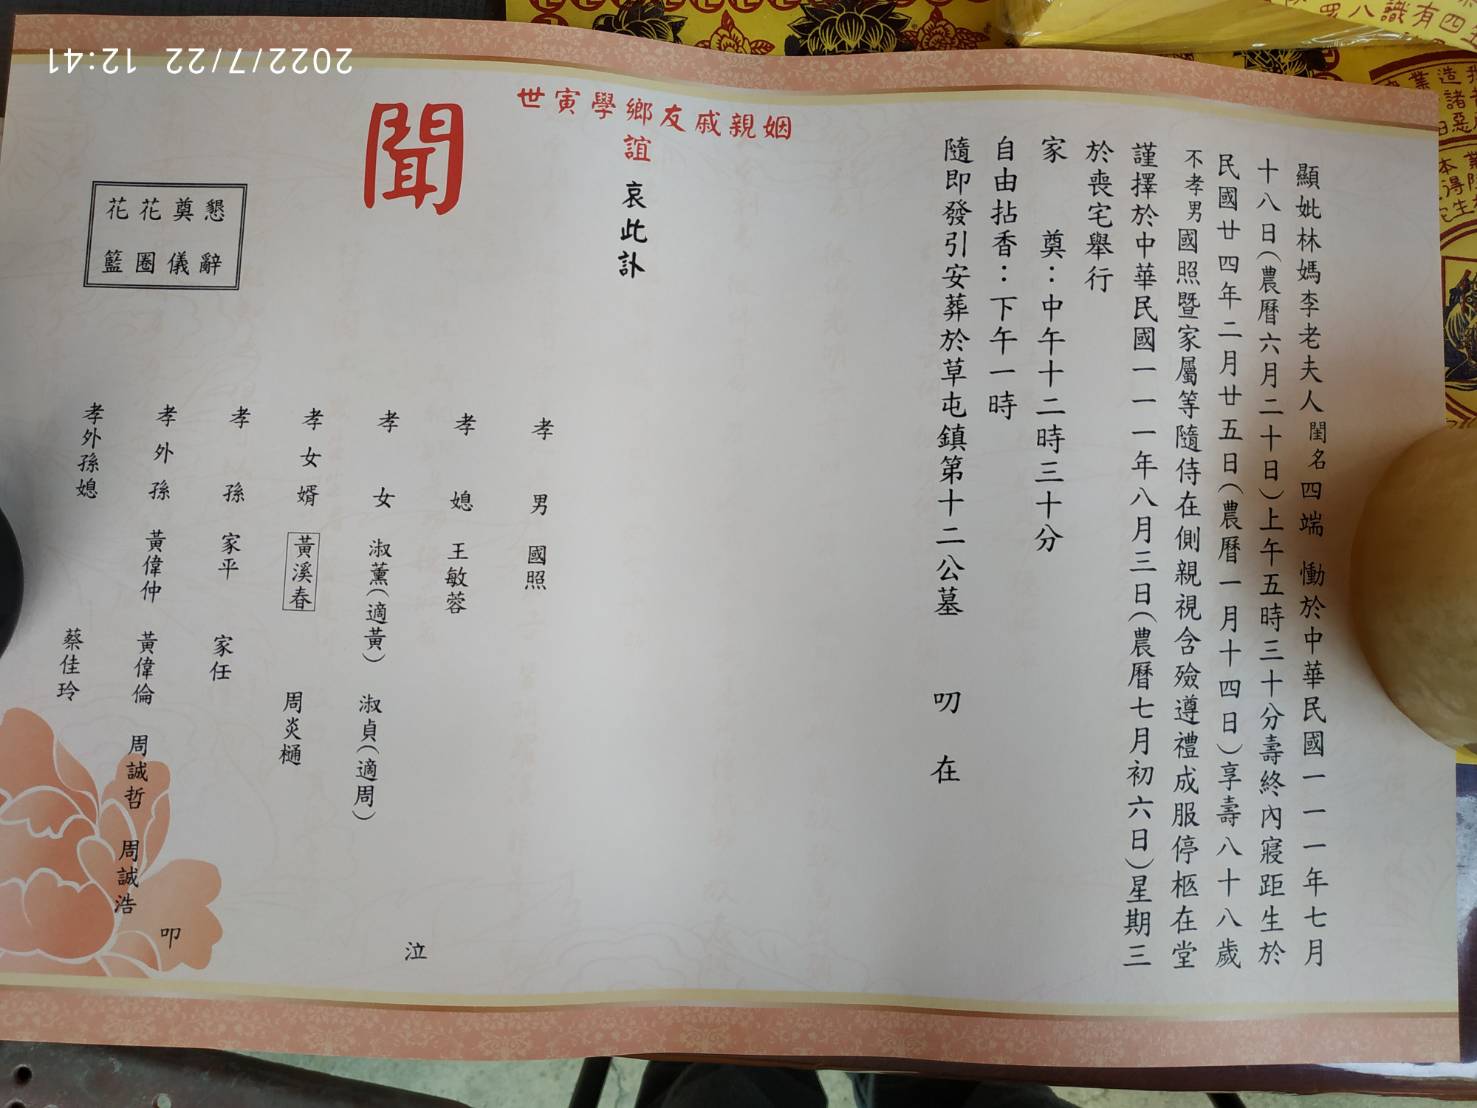 顯妣林媽李老夫人閨名四端 慟於中華民國一一一年七月
十八日(農曆六月二十日)上午五時三十分壽終內寢距生於
民國廿四年二月廿五日(農曆一月十四日)享壽八十八歲
不孝男國照暨家屬等隨侍在側親視含殮遵禮成服停柩在堂
謹擇於中華民國一一一年八月三日(農曆七月初六日)星期三
於喪宅舉行
家 奠:中午十二時三十分
自由拈香:下午一時
隨即發引安葬於草屯鎮第十二公墓 叨 在
姻親戚友鄉學寅世
誼 哀此訃
聞
孝 男 國照
孝 媳 王敏蓉
孝 女 淑薰(適黃) 淑貞(適周)
孝女婿 黃溪春 周炎樋
孝 孫 家平 家任
孝外孫 黃偉仲 黃偉倫 周誠哲 周誠浩
孝外孫媳 蔡佳玲
泣
叩
懇辭
奠儀
花圈
花籃
2022/7/22 12:41